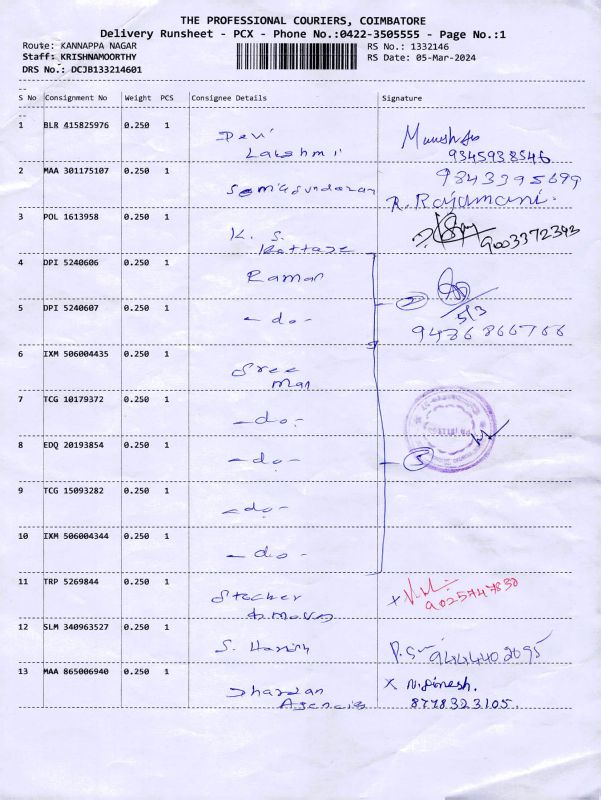 THE PROFESSIONAL COURIERS, COIMBATORE
Delivery Runsheet - PCX - Phone No.:0422-3505555 - Page No.:1
Route: KANNAPPA NAGAR RS No.: 1332146
Staff: KRISHNAMOORTHY RS Date: 05-Mar-2024
DRS No.: DCJB133214601
S No Consignment No Weight PCS Consignee Details Signature
1 BLR 415825976 0.250 1 Devi
Lakshmi
9345938546
2 MAA 301175107 0.250 1 9843395699
R. Rajamani.
3 POL 1613958 0.250 1 K. S.
9003372393
4 DPI 5240606 0.250 1 Raman
2
5 DPI 5240607 0.250 1 - do - 5/3
9486866766
6 IXM 506004435 0.250 1 Sree
man
7 TCG 10179372 0.250 1 - do -
8 EDQ 20193854 0.250 1 - do - 5
9 TCG 15093282 0.250 1 - do -
10 IXM 506004344 0.250 1 - do -
11 TRP 5269844 0.250 1 9025747830
12 SLM 340963527 0.250 1 S. Harish 9444402095
13 MAA 865006940 0.250 1 Dharsan X N.Dinesh.
Agencies 8778323105.